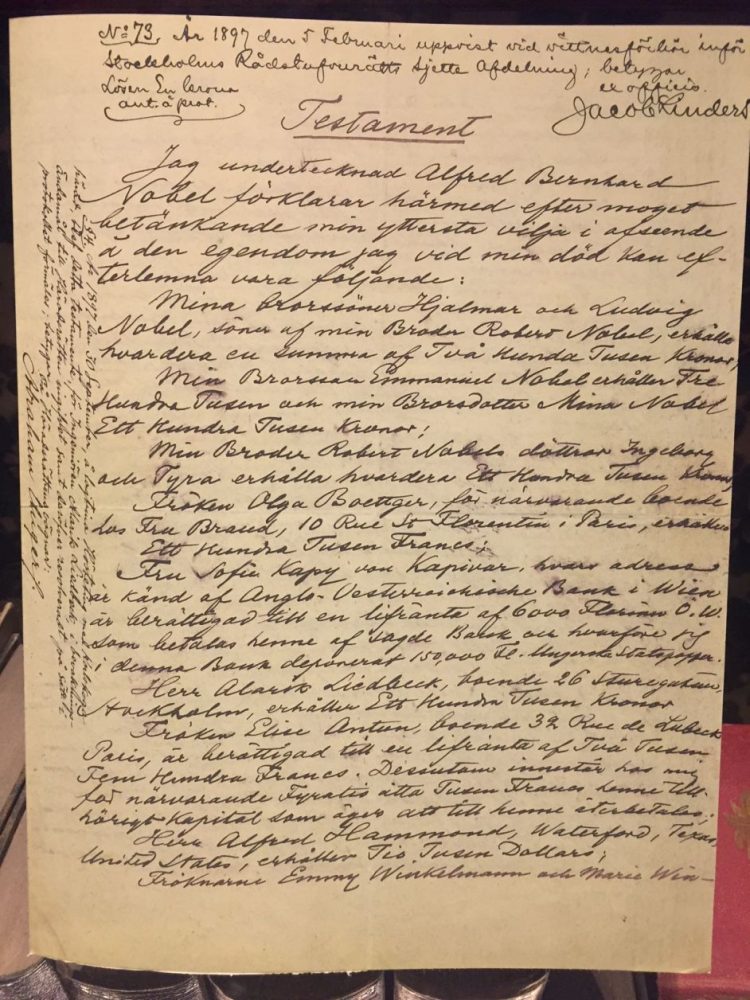 No 73. År 1897 den 5 Februari uppvist vid vittnesförhör inför
Stockholms Rådstufvurätts sjette Afdelning; betygar
Lösen En krona
ex officio.
ant. å prot.
Jacob Linders
Testament
Jag undertecknad Alfred Bernhard
Nobel förklarar härmed efter moget
betänkande min yttersta vilja i afseende
å den egendom jag vid min död kan ef-
terlemna vara följande:
Mina Brorsöner Hjalmar och Ludvig
Nobel, söner af min Broder Robert Nobel, erhålla
hvardera en summa af Två Hundra Tusen Kronor;
Min Brorsson Emmanuel Nobel erhåller Tre
Hundra Tusen och min Brorsdotter Mina Nobel
Ett Hundra Tusen Kronor;
Min Broder Robert Nobels döttrar Ingeborg
och Tyra erhålla hvardera Ett Hundra Tusen Kronor
Fröken Olga Boettger, för närvarande boende
hos Fru Brand, 10 Rue St Florentin i Paris, erhåller
Ett Hundra Tusen Francs;
Fru Sofie Kapy von Kapivar, hvars adress
är känd af Anglo-Oesterreichische Bank i Wien
är berättigad till en lifränta af 6000 Florins Ö.W.
som betalas henne af sagde Bank och hvarföre jag
i denna Bank deponerat 150,000 Fl. Ungerska Statspapper.
Herr Alarik Liedbeck, boende 26 Sturegatan,
Stockholm, erhåller Ett Hundra Tusen Kronor
Fröken Elise Antun, boende 32 Rue de Lubeck
Paris, är berättigad till en lifränta af Två Tusen
Fem Hundra Francs. Dessutom innestår hos mig
för närvarande Fyratio åtta Tusen Francs henne till-
hörigt kapital som äger att till henne återbetalas;
Herr Alfred Hammond, Waterford, Texas,
United States, erhåller Tio Tusen Dollars;
Fröknarne Emmy Winkelmann och Marie Win-
År 1897 den 30 September, å lagtima